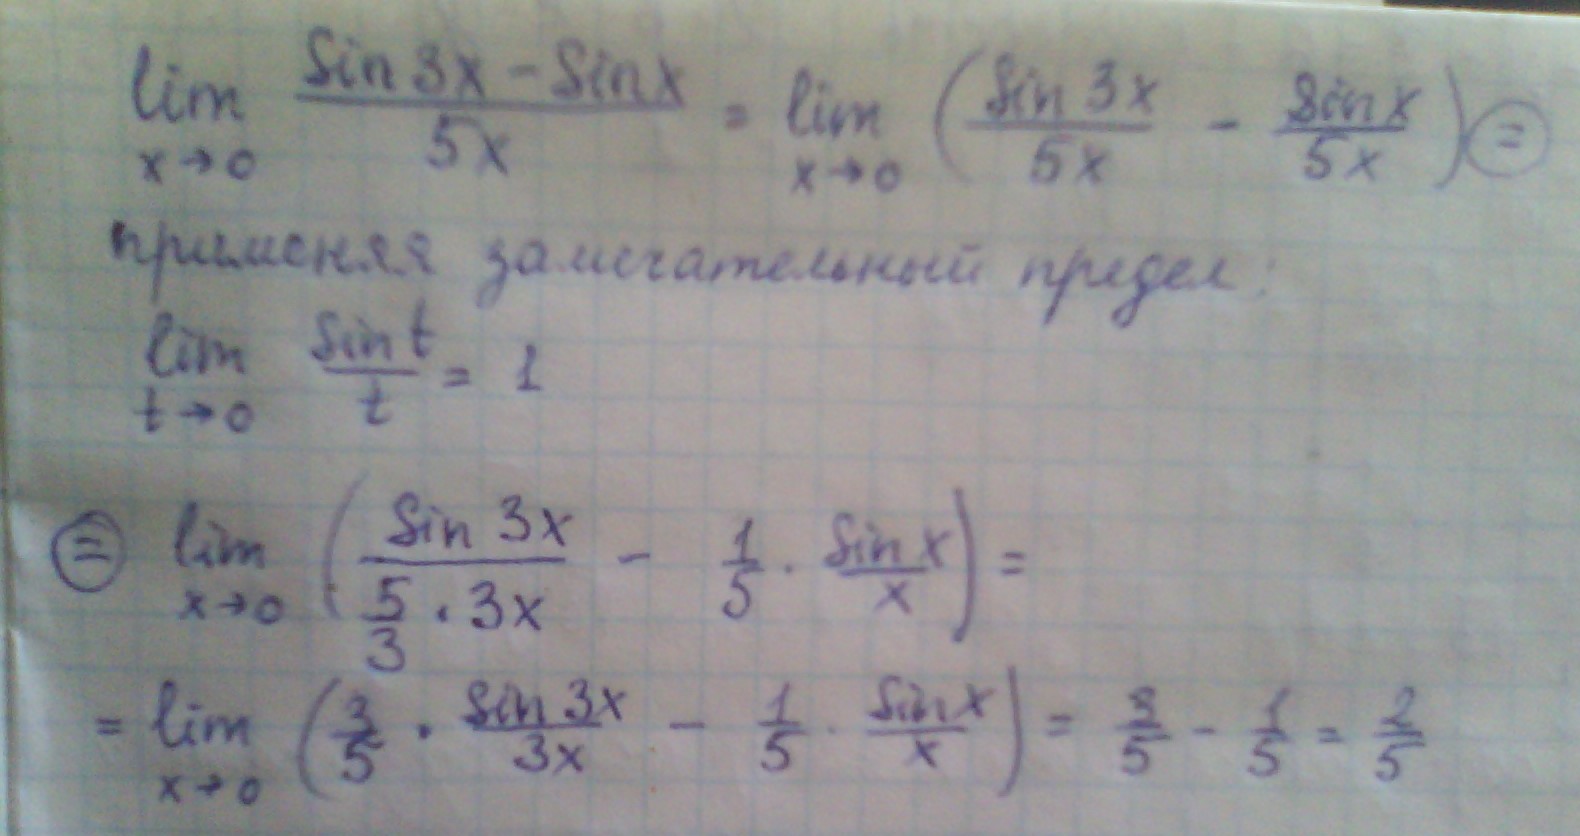 lim x→0 (sin 3x − sin x)/(5x) = lim x→0 (sin 3x/5x − sin x/5x) ⊜
применяя замечательный предел:
lim t→0 sin t/t = 1
⊜ lim x→0 (sin 3x/(5/3 · 3x) − 1/5 · sin x/x) =
= lim x→0 (3/5 · sin 3x/3x − 1/5 · sin x/x) = 3/5 − 1/5 = 2/5